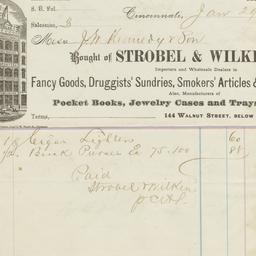 S. B. Fol.
Cincinnati, Jan 24
Salesman, B
Mess J. W. Kennedy & Son
Bought of STROBEL & WILKE
Importers and Wholesale Dealers in
Fancy Goods, Druggists' Sundries, Smokers' Articles &
Also, Manufacturers of
Pocket Books, Jewelry Cases and Trays
Terms, 144 WALNUT STREET, BELOW
Cigar Lighters 60
Book Purses Ea 75.100 88
Paid
Strobel & Wilken